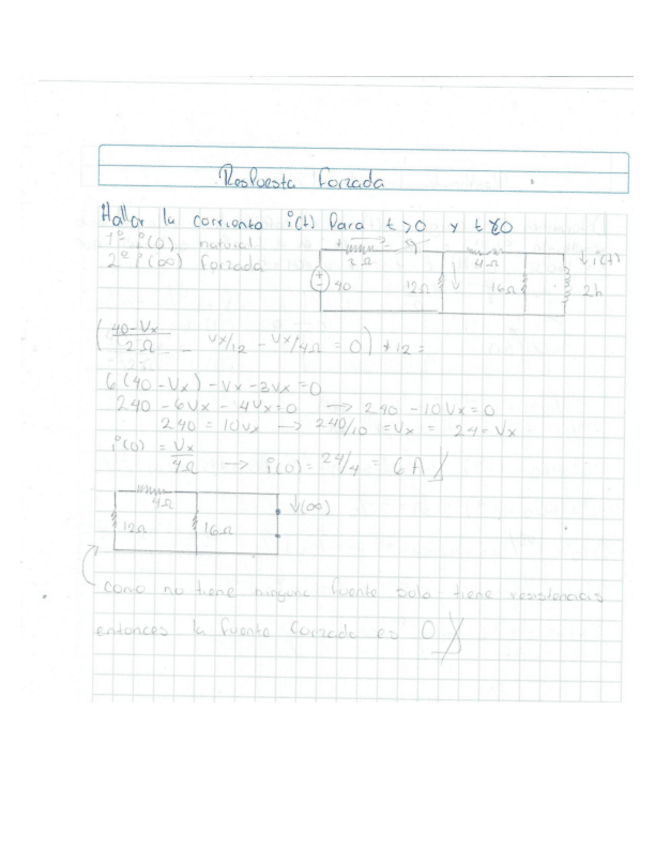 Respuesta forzada
Hallar la corriente i(t) Para t>0 y t<0
1º i(0) natural
2º i(∞) forzada
2Ω 4Ω ↓i(t)
40 12Ω 16Ω 2h
(40-Vx/2Ω - Vx/12 - Vx/4Ω = 0) * 12 =
6(40-Vx) - Vx - 3Vx = 0
240 - 6Vx - 4Vx = 0 → 240 - 10Vx = 0
240 = 10Vx → 240/10 = Vx = 24 = Vx
i(0) = Vx/4Ω → i(0) = 24/4 = 6A
4Ω ↓i(∞)
12Ω 16Ω
como no tiene ninguna fuente solo tiene resistencias
entonces la fuente forzada es 0